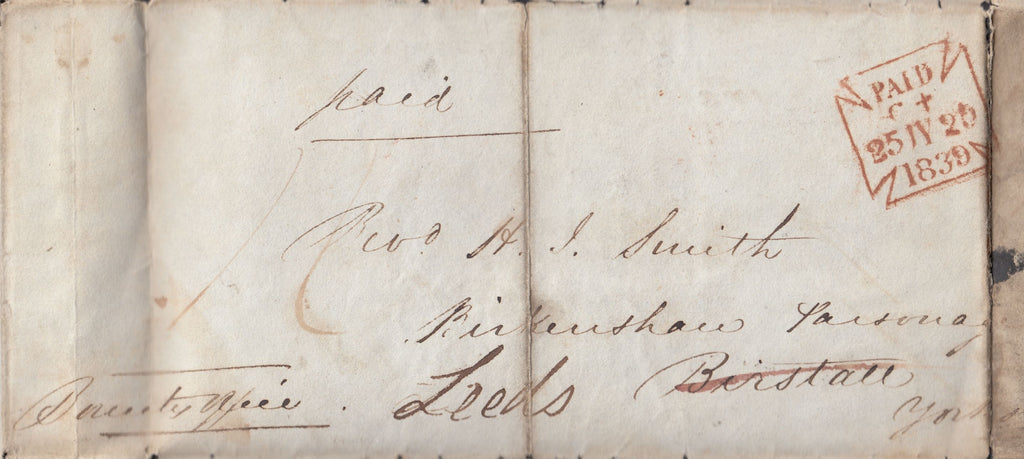 paid
PAID
25 JY 25
1839
Revd H. J. Smith
Birkenshaw Parsonag
Leeds Birstall
County Office . York